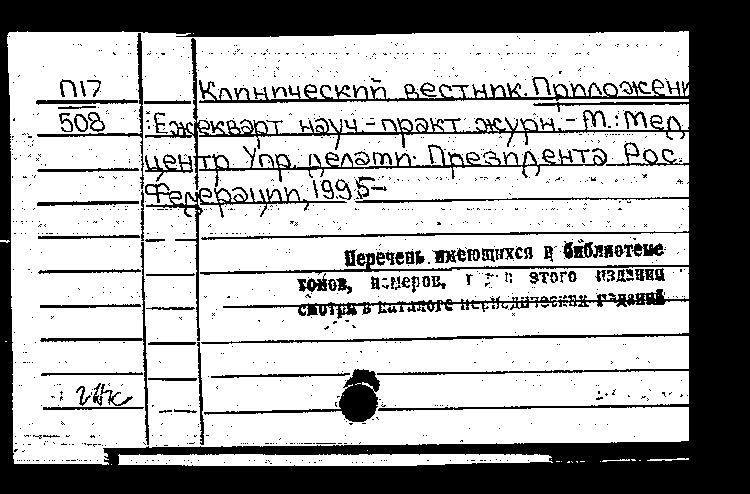 П17
508
Клинический вестник. Приложени
: Ежекварт науч.-практ журн. - М.: Мед.
центр Упр. делами Президента Рос.
Федерации, 1995-
Перечень имеющихся в библиотеке
томов, номеров, этого издания
смотри в каталоге периодических изданий